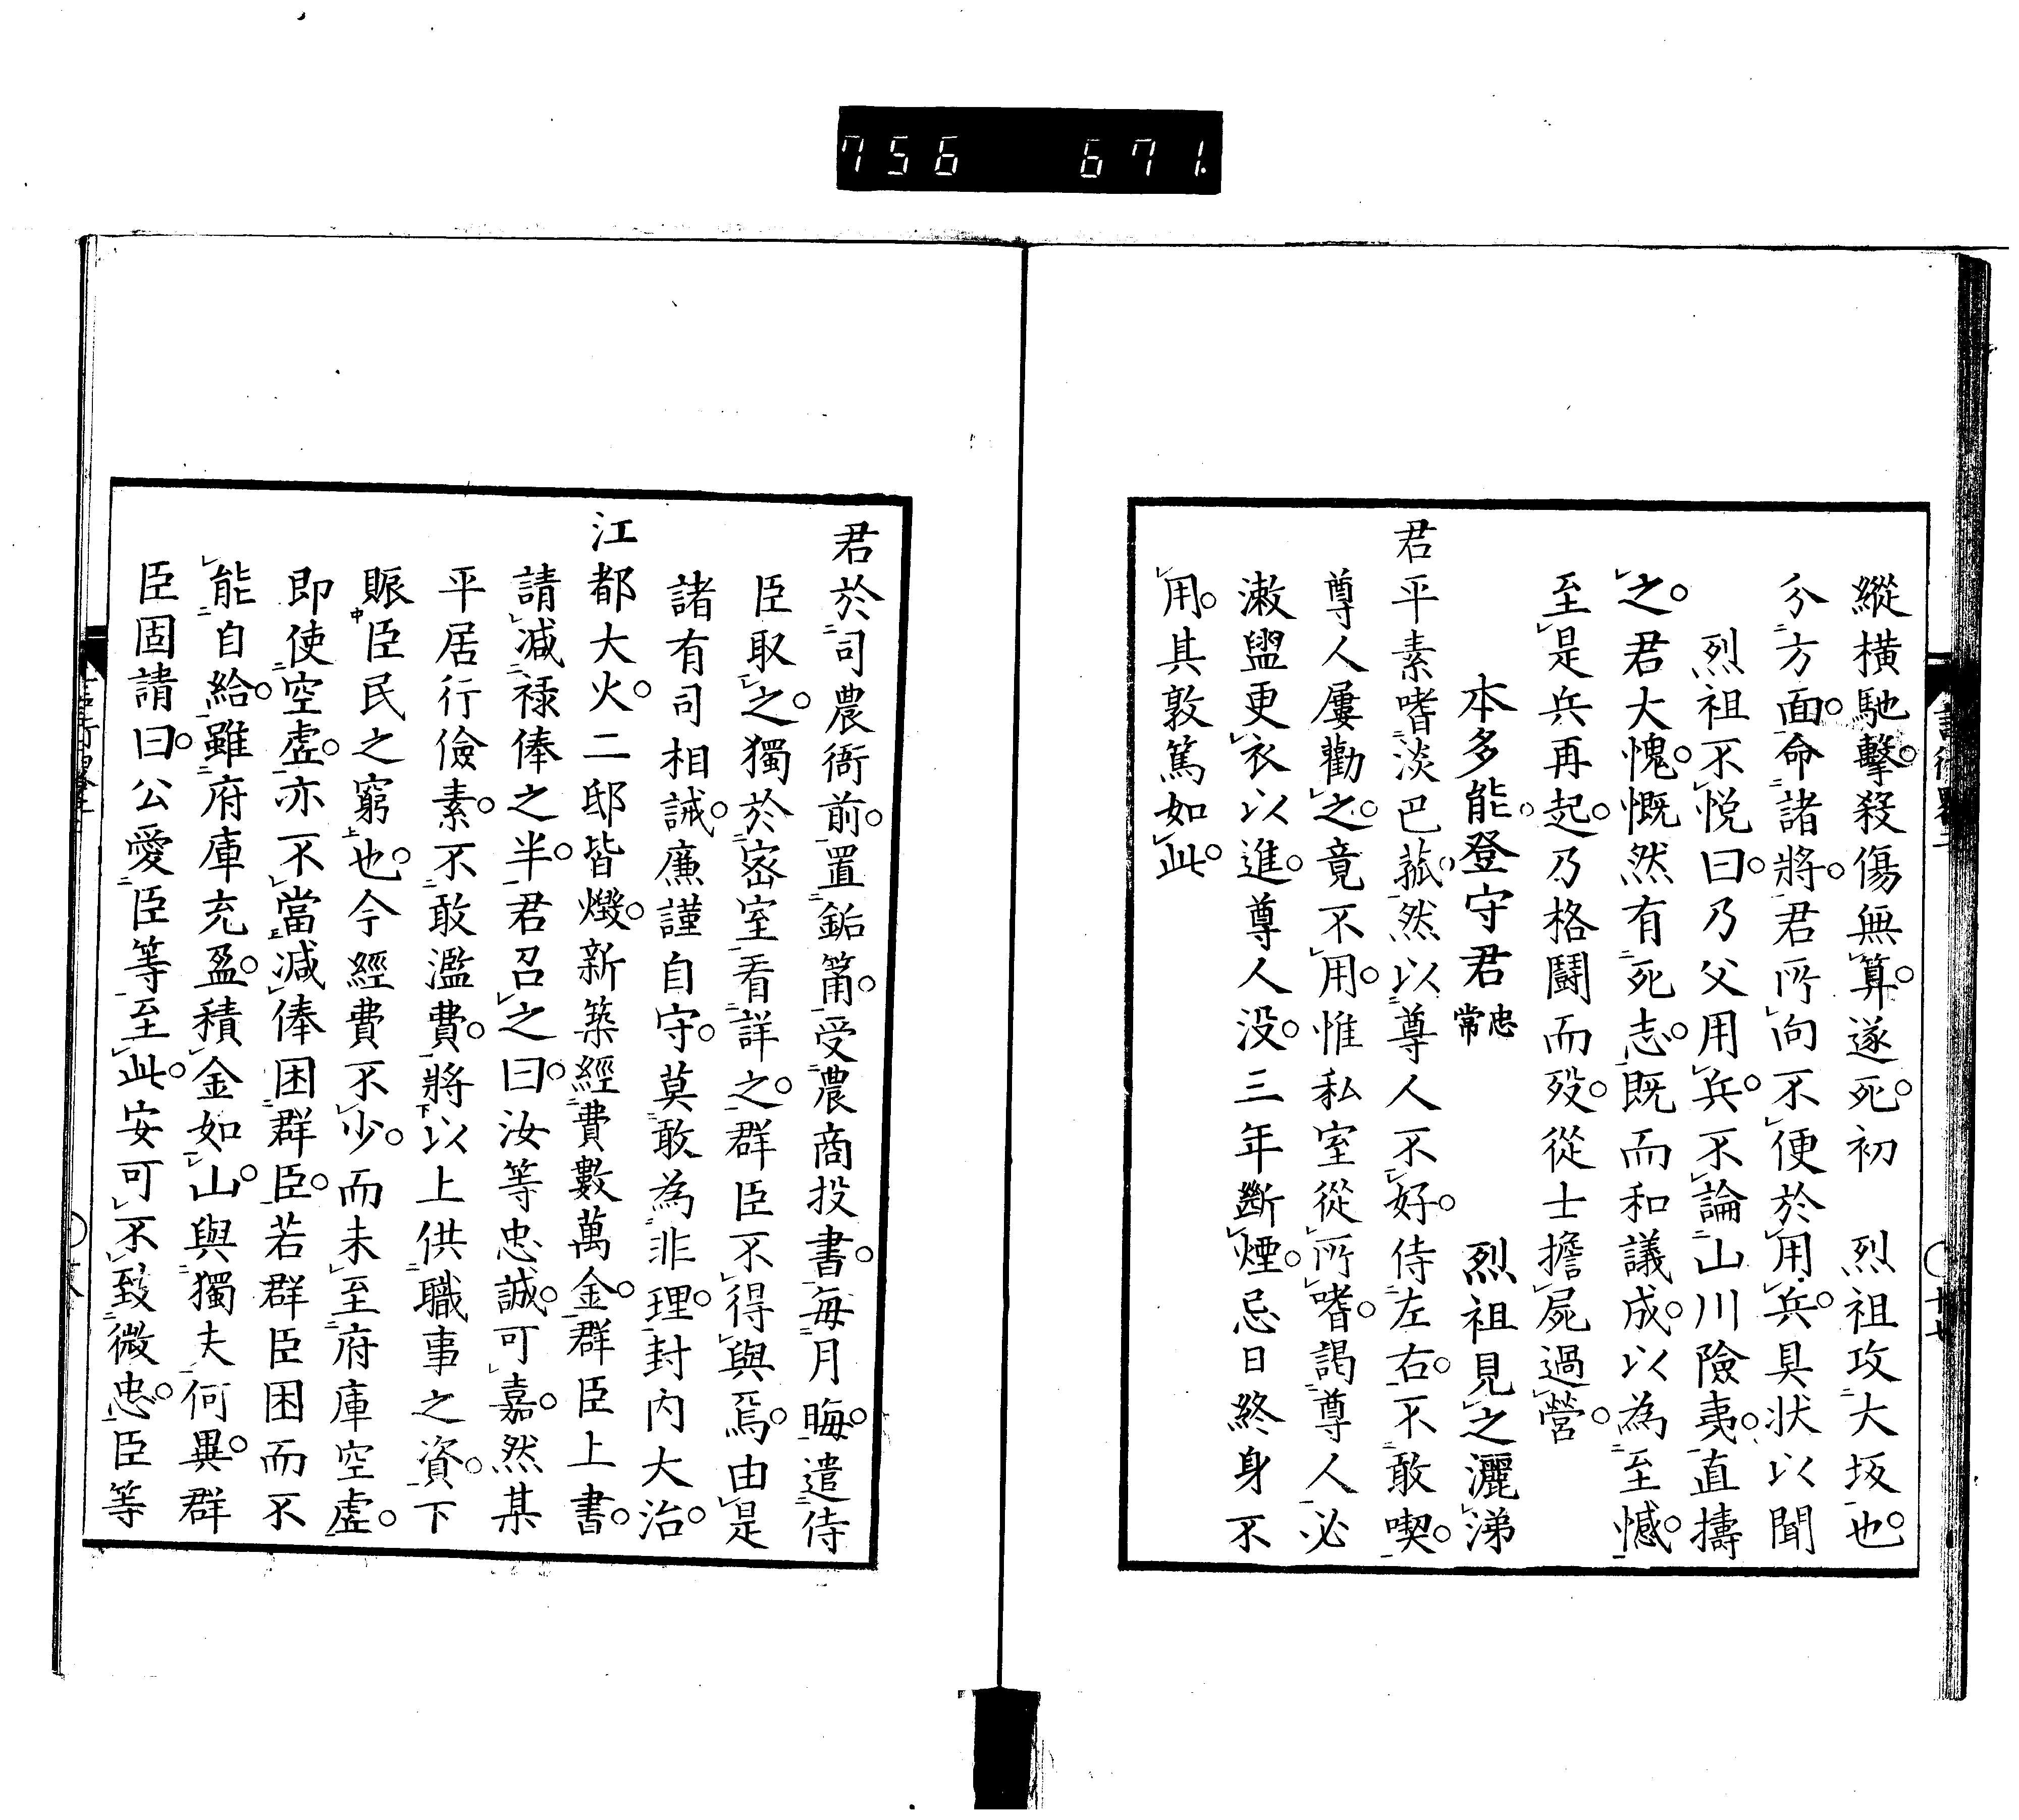 756 671.
縱横馳擊。殺傷無算。遂死。初　烈祖攻大坂也。
分方面。命諸將。君所向不便於用兵。具状以聞
烈祖不悦曰。乃父用兵。不論山川險夷。直擣
之。君大愧。慨然有死志。既而和議成。以為至憾。
至是兵再起。乃格鬪而歿。從士擔屍過營。
本多能登守君忠常　烈祖見之灑涕
君平素嗜淡巴菰。然以尊人不好。侍左右。不敢喫。
尊人屢勸之。竟不用。惟私室從所嗜。謁尊人必
漱盥更衣以進。尊人没。三年斷煙。忌日終身不
用。其敦篤如此。
君於司農衙前。置鉐筩。受農商投書。毎月晦。遣侍
臣取之。獨於密室看詳之。群臣不得與焉。由是
諸有司相誡。廉謹自守。莫敢為非理。封内大治。
江都大火。二邸皆燬。新築經費數萬金。群臣上書。
請減禄俸之半。君召之曰。汝等忠誠。可嘉。然某
平居行儉素。不敢濫費。將以上供職事之資。下
賑臣民之窮也。今經費不少。而未至府庫空虚。
即使空虚。亦不當減俸困群臣。若群臣困而不
能自給。雖府庫充盈。積金如山。與獨夫何異。群
臣固請曰。公愛臣等至此。安可不致微忠。臣等